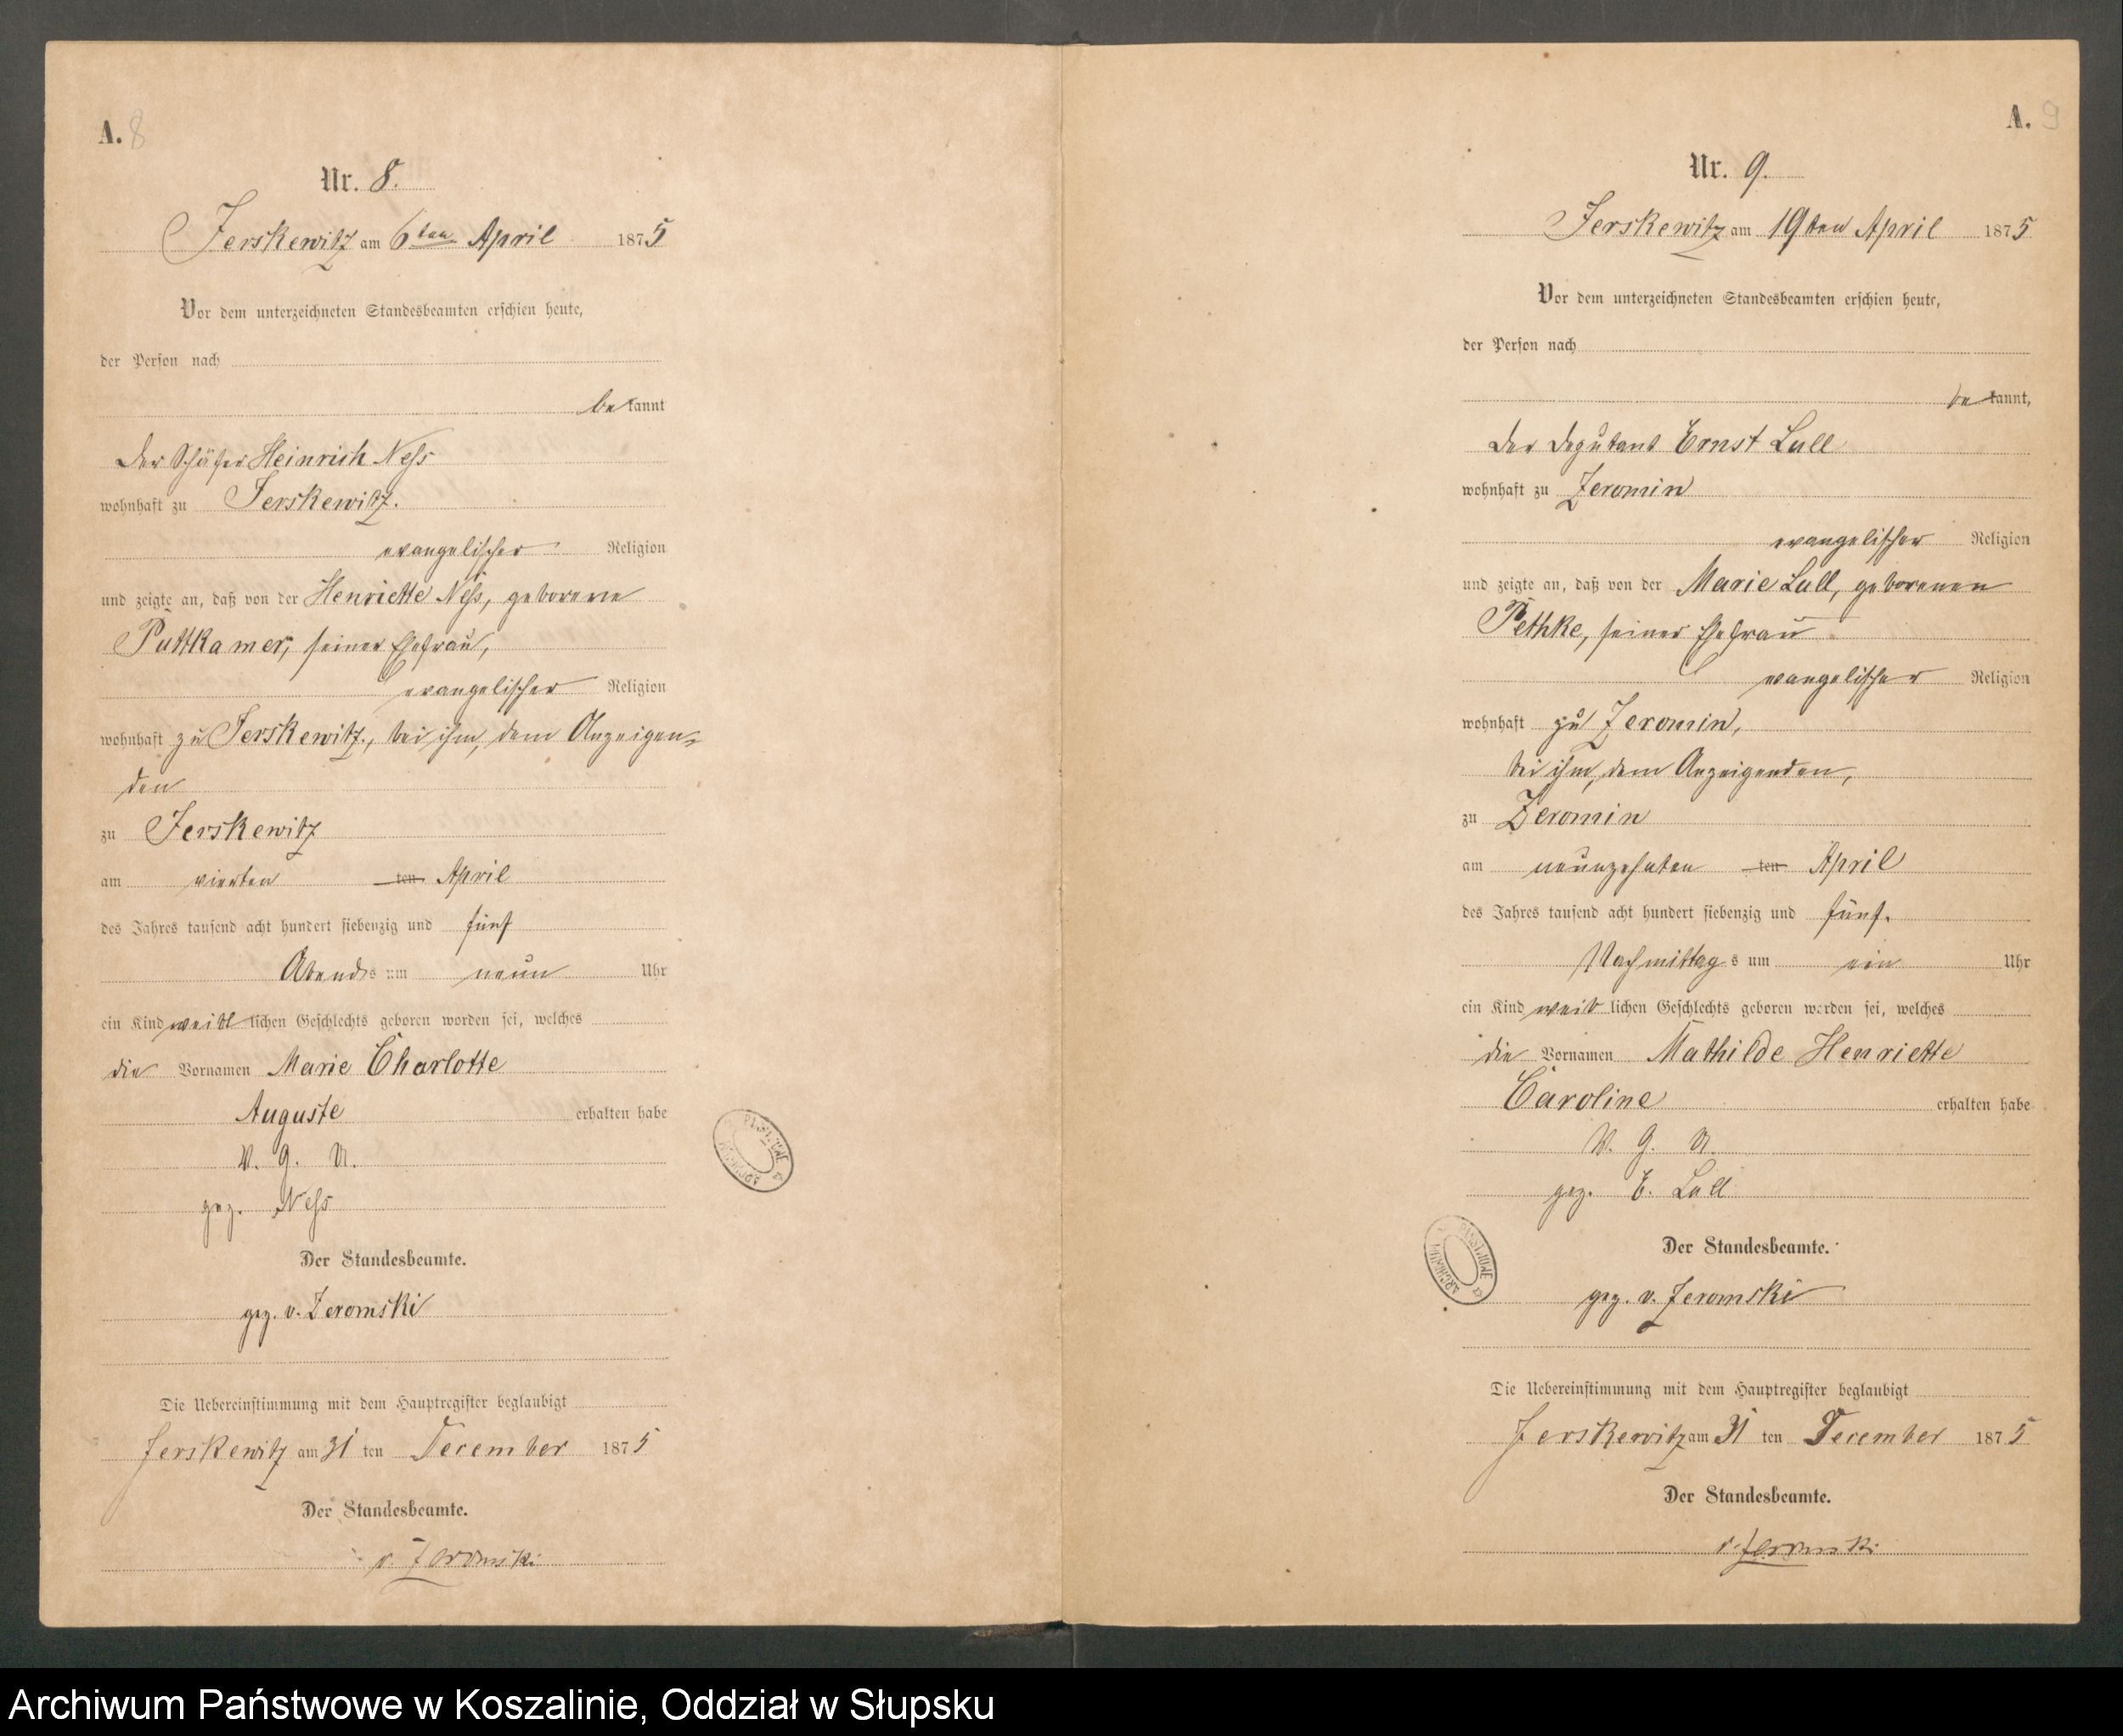 A. 8
Nr. 8.
Jerskewitz am 6ten April 1875
Vor dem unterzeichneten Standesbeamten erschien heute,
der Person nach
bekannt
der Schäfer Heinrich Neß
wohnhaft zu Jerskewitz.
evangelischer Religion
und zeigte an, daß von der Henriette Neß, geborene
Puttkamer, seiner Ehefrau,
evangelischer Religion
wohnhaft zu Jerskewitz, bei ihm, dem Anzeigen-
den
zu Jerskewitz
am vierten ten April
des Jahres tausend acht hundert siebenzig und fünf
Abends um neun Uhr
ein Kind weibl lichen Geschlechts geboren worden sei, welches
die Vornamen Marie Charlotte
Auguste erhalten habe
V. G. U.
gez. Neß
Der Standesbeamte.
gez. v. Jeromski
Die Uebereinstimmung mit dem Hauptregister beglaubigt
Jerskewitz am 31 ten December 1875
Der Standesbeamte.
v. Jeromski
A. 9
Nr. 9.
Jerskewitz am 19ten April 1875
Vor dem unterzeichneten Standesbeamten erschien heute,
der Person nach
bekannt,
der Deputant Ernst Lull
wohnhaft zu Jeromin
evangelischer Religion
und zeigte an, daß von der Marie Lull, geborenen
Pethke, seiner Ehefrau
evangelischer Religion
wohnhaft zu Jeromin,
bei ihm, dem Anzeigenden,
zu Jeromin
am neunzehnten ten April
des Jahres tausend acht hundert siebenzig und fünf.
Nachmittags um ein Uhr
ein Kind weiblichen Geschlechts geboren worden sei, welches
die Vornamen Mathilde Henriette
Caroline erhalten habe
V. G. U.
gez. E. Lull
Der Standesbeamte.
gez. v. Jeromski
Die Uebereinstimmung mit dem Hauptregister beglaubigt
Jerskewitz am 31 ten December 1875
Der Standesbeamte.
v. Jeromski
Archiwum Państwowe w Koszalinie, Oddział w Słupsku